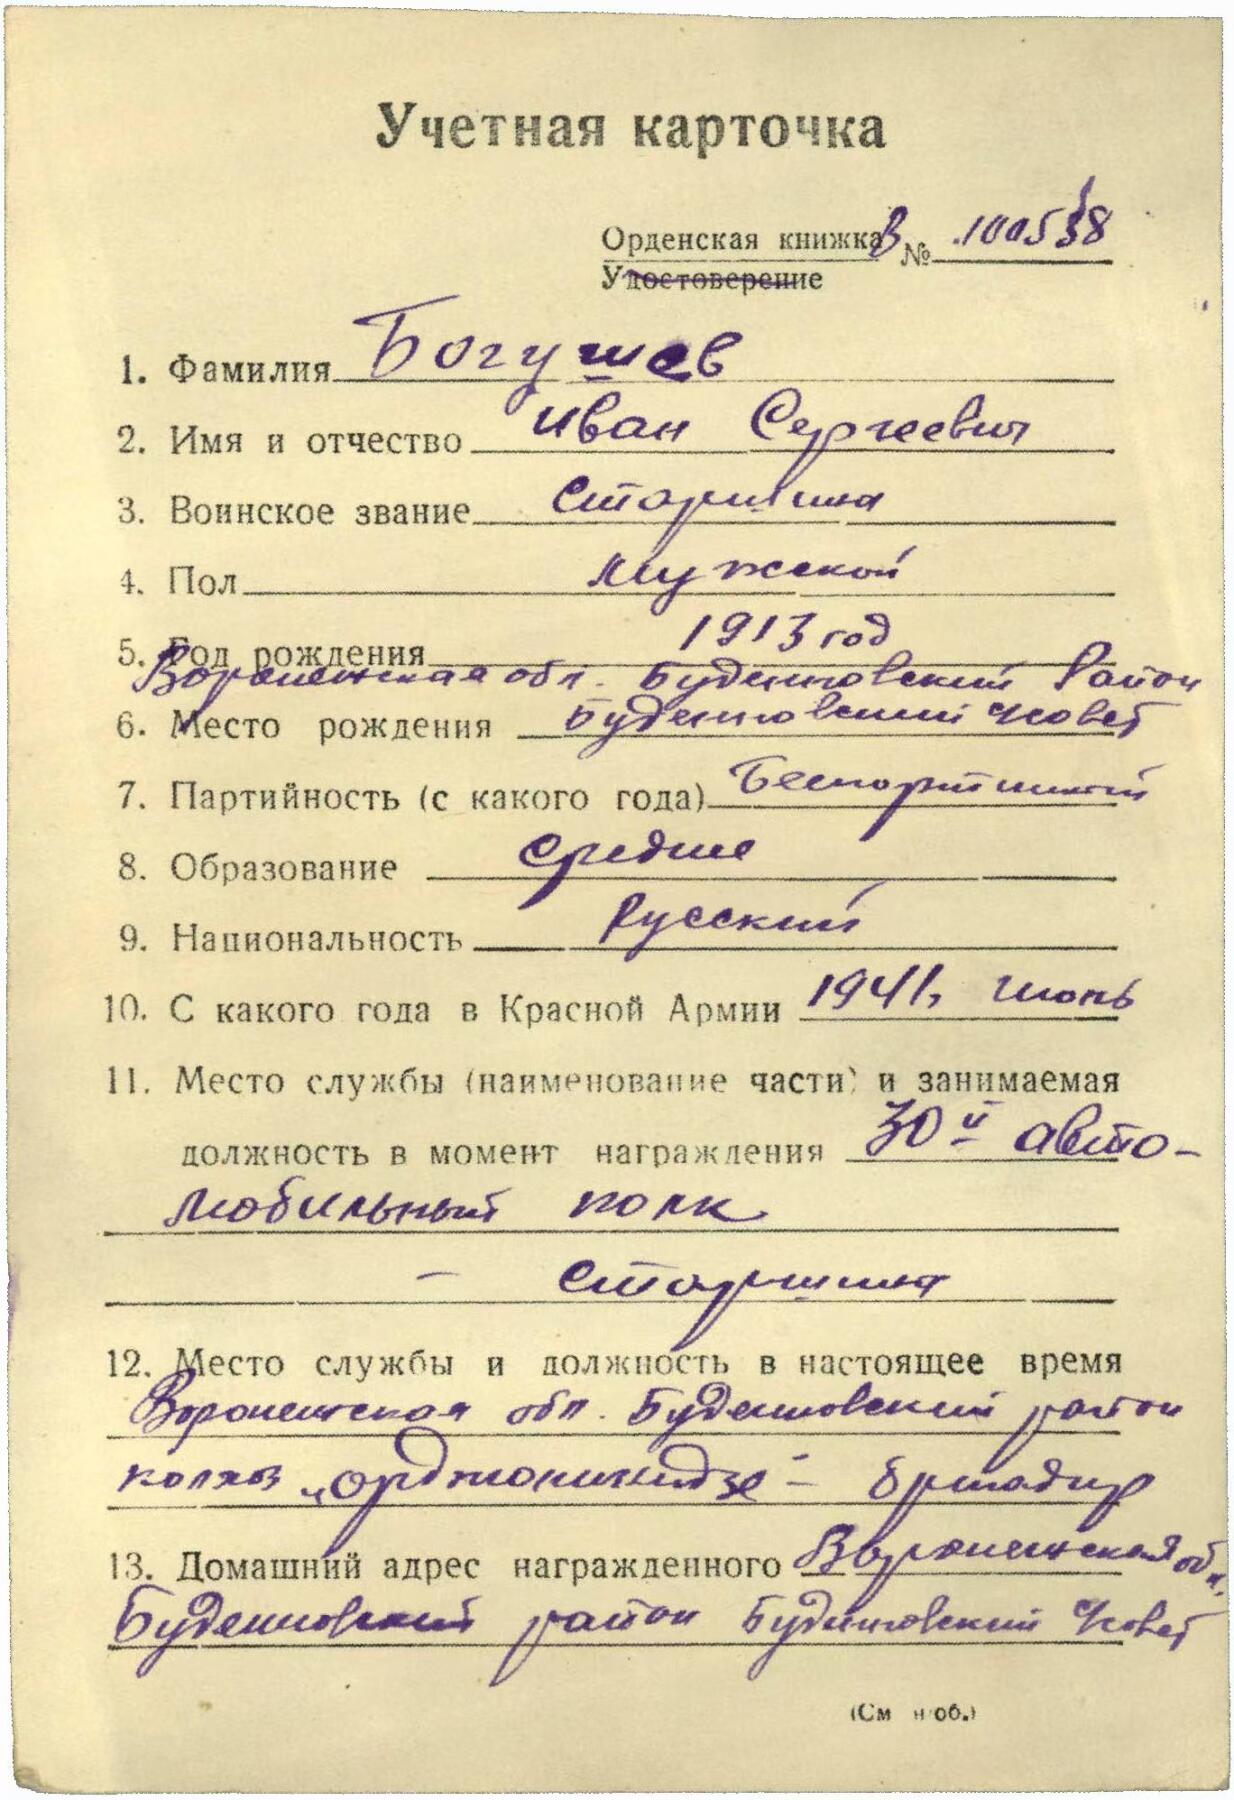 Учетная карточка
Орденская книжка В № 100538
Удостоверение
1. Фамилия Богушев
2. Имя и отчество Иван Сергеевич
3. Воинское звание Старшина
4. Пол мужской
5. Год рождения 1913 год
Воронежская обл. Буденновский Район
6. Место рождения Буденновский с/совет
7. Партийность (с какого года) Беспартийный
8. Образование средние
9. Национальность Русский
10. С какого года в Красной Армии 1941, июнь
11. Место службы (наименование части) и занимаемая
должность в момент награждения 30й авто-
мобильный полк
– старшина
12. Место службы и должность в настоящее время
Воронежская обл. Буденновский район
колхоз „Орджоникидзе" – бригадир
13. Домашний адрес награжденного Воронежская обл.
Буденновский район Буденновский с/совет
(См н/об.)